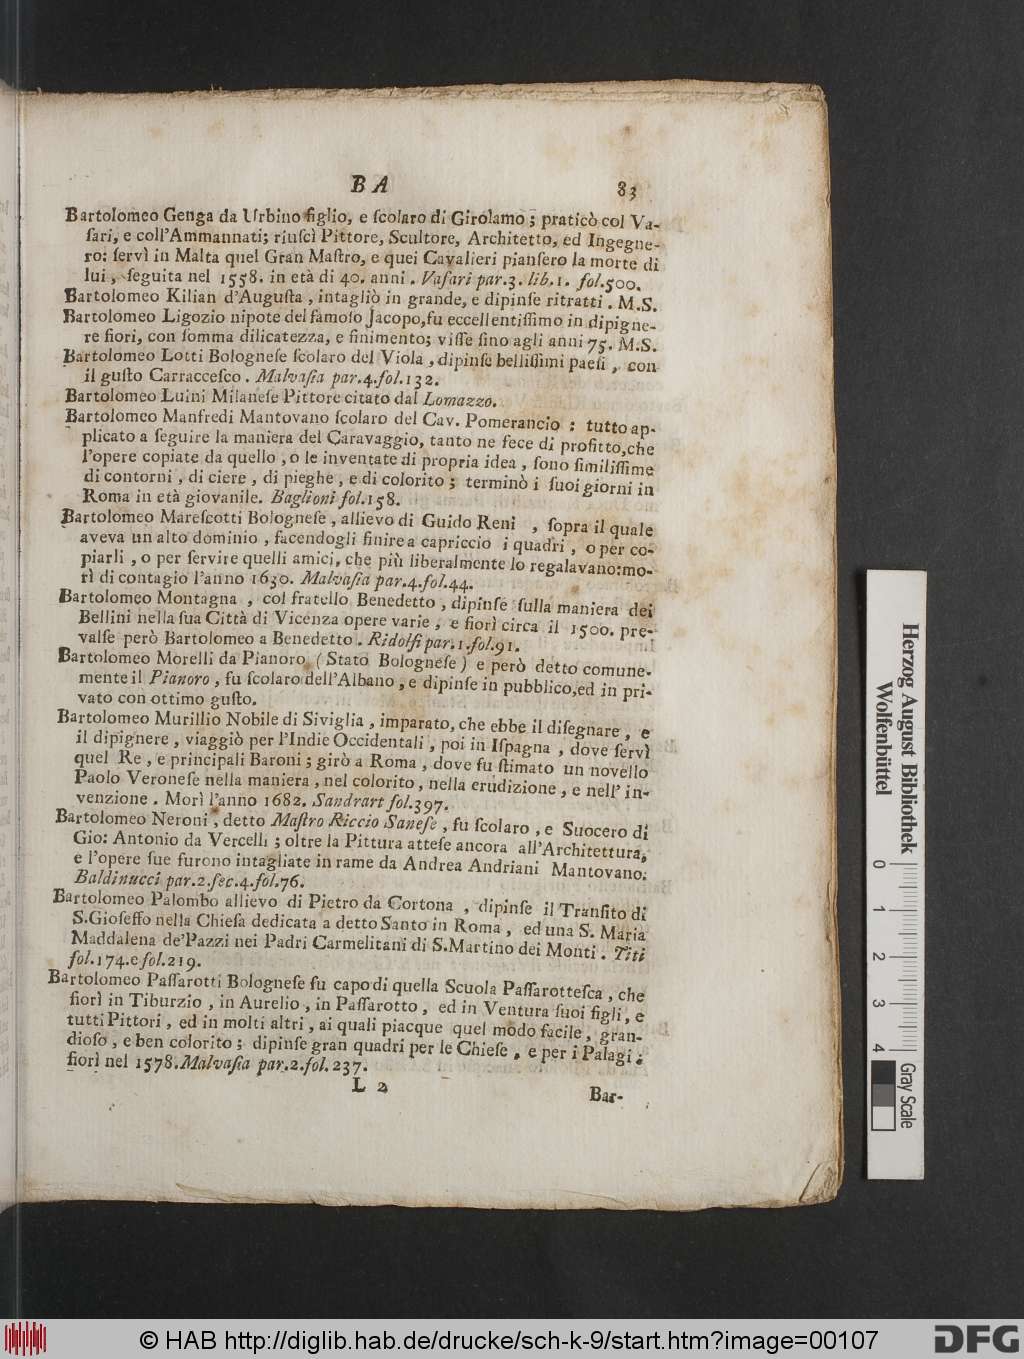 B A
83
Bartolomeo Genga da Urbino figlio, e ſcolaro di Girolamo ; praticò col Va-
ſari, e coll'Ammannati; riuſcì Pittore, Scultore, Architetto, ed Ingegne-
ro: ſervì in Malta quel Gran Maſtro, e quei Cavalieri pianſero la morte di
lui, ſeguita nel 1558. in età di 40. anni . Vaſari par.3. lib.1. fol.500.
Bartolomeo Kilian d'Auguſta , intagliò in grande, e dipinſe ritratti . M.S.
Bartolomeo Ligozio nipote del famoſo Jacopo,fu eccellentiſſimo in dipigne-
re fiori, con ſomma dilicatezza, e finimento; viſſe ſino agli anni 75. M.S.
Bartolomeo Lotti Bologneſe ſcolaro del Viola , dipinſe belliſſimi paeſi , con
il guſto Carracceſco . Malvaſia par.4.fol.132.
Bartolomeo Luini Milaneſe Pittore citato dal Lomazzo.
Bartolomeo Manfredi Mantovano ſcolaro del Cav. Pomerancio : tutto ap-
plicato a ſeguire la maniera del Caravaggio, tanto ne fece di profitto,che
l'opere copiate da quello , o le inventate di propria idea , ſono ſimiliſſime
di contorni , di ciere , di pieghe , e di colorito ; terminò i ſuoi giorni in
Roma in età giovanile. Baglioni fol.158.
Bartolomeo Mareſcotti Bologneſe , allievo di Guido Reni , ſopra il quale
aveva un alto dominio , facendogli finire a capriccio i quadri , o per co-
piarli , o per ſervire quelli amici, che più liberalmente lo regalavano:mo-
rì di contagio l'anno 1630. Malvaſia par.4.fol.44.
Bartolomeo Montagna , col fratello Benedetto , dipinſe ſulla maniera dei
Bellini nella ſua Città di Vicenza opere varie , e fiorì circa il 1500. pre-
valſe però Bartolomeo a Benedetto . Ridolfi par.1.fol.91.
Bartolomeo Morelli da Pianoro ( Stato Bologneſe ) e però detto comune-
mente il Pianoro , fu ſcolaro dell'Albano , e dipinſe in pubblico,ed in pri-
vato con ottimo guſto.
Bartolomeo Murillio Nobile di Siviglia , imparato, che ebbe il diſegnare , e
il dipignere , viaggiò per l'Indie Occidentali , poi in Iſpagna , dove ſervì
quel Re , e principali Baroni ; girò a Roma , dove fu ſtimato un novello
Paolo Veroneſe nella maniera , nel colorito , nella erudizione , e nell' in-
venzione . Morì l'anno 1682. Sandrart fol.397.
Bartolomeo Neroni , detto Maſtro Riccio Saneſe , fu ſcolaro , e Suocero di
Gio: Antonio da Vercelli ; oltre la Pittura atteſe ancora all'Architettura,
e l'opere ſue furono intagliate in rame da Andrea Andriani Mantovano.
Baldinucci par.2.ſec.4.fol.76.
Bartolomeo Palombo allievo di Pietro da Cortona , dipinſe il Tranſito di
S.Gioſeffo nella Chieſa dedicata a detto Santo in Roma , ed una S. Maria
Maddalena de'Pazzi nei Padri Carmelitani di S.Martino dei Monti . Titi
fol.174.e fol.219.
Bartolomeo Paſſarotti Bologneſe fu capo di quella Scuola Paſſarotteſca , che
fiorì in Tiburzio , in Aurelio , in Paſſarotto , ed in Ventura ſuoi figli , e
tutti Pittori , ed in molti altri , ai quali piacque quel modo facile , gran-
dioſo , e ben colorito ; dipinſe gran quadri per le Chieſe , e per i Palagi ;
fiorì nel 1578.Malvaſia par.2.fol.237.
L 2
Bar-
Herzog August Bibliothek
Wolfenbüttel
0 1 2 3 4
Gray Scale
© HAB http://diglib.hab.de/drucke/sch-k-9/start.htm?image=00107
DFG